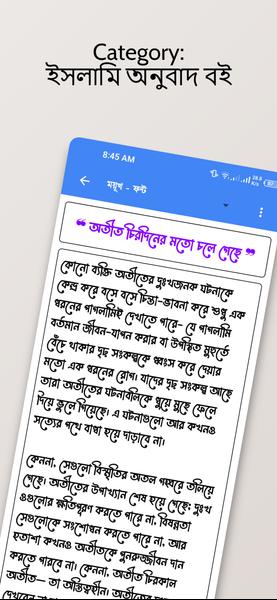 Category:
ইসলামি অনুবাদ বই
8:45 AM
28.8
K/s
ময়ূখ - ফন্ট
❝ অতীত চিরদিনের মতো চলে গেছে ❞
কোনো ব্যক্তি অতীতের দুঃখজনক ঘটনাকে
কেন্দ্র করে বসে বসে চিন্তা-ভাবনা করে শুধু এক
ধরনের পাগলামিই দেখাতে পারে- যে পাগলামি
বর্তমান জীবন-যাপন করার বা উপস্থিত মুহূর্তে
বেঁচে থাকার দৃঢ় সংকল্পকে ধ্বংস করে দেয়ার
মতো এক ধরনের রোগ। যাদের দৃঢ় সংকল্প আছে
তারা অতীতের ঘটনাবলিকে ধুয়ে মুছে ফেলে
দিয়ে ভুলে গিয়েছে। এ ঘটনাগুলো আর কখনও
সত্যের পথে বাধা হয়ে দাড়াবে না।
কেননা, সেগুলো বিস্মৃতির অতল গহ্বরে তলিয়ে
গেছে। অতীতের উপাখ্যান শেষ হয়ে গেছে; দুঃখ
ওগুলোর ক্ষতিপূরণ করতে পারে না, বিষণ্নতা
সেগুলোকে সংশোধন করতে পারে না, আর
হতাশা কখনও অতীতকে পুনরুজ্জীবন দান
করতে পারবে না। কেননা, অতীত চিরকাল
অতীত— তা অস্তিত্বহীন। অতীতের